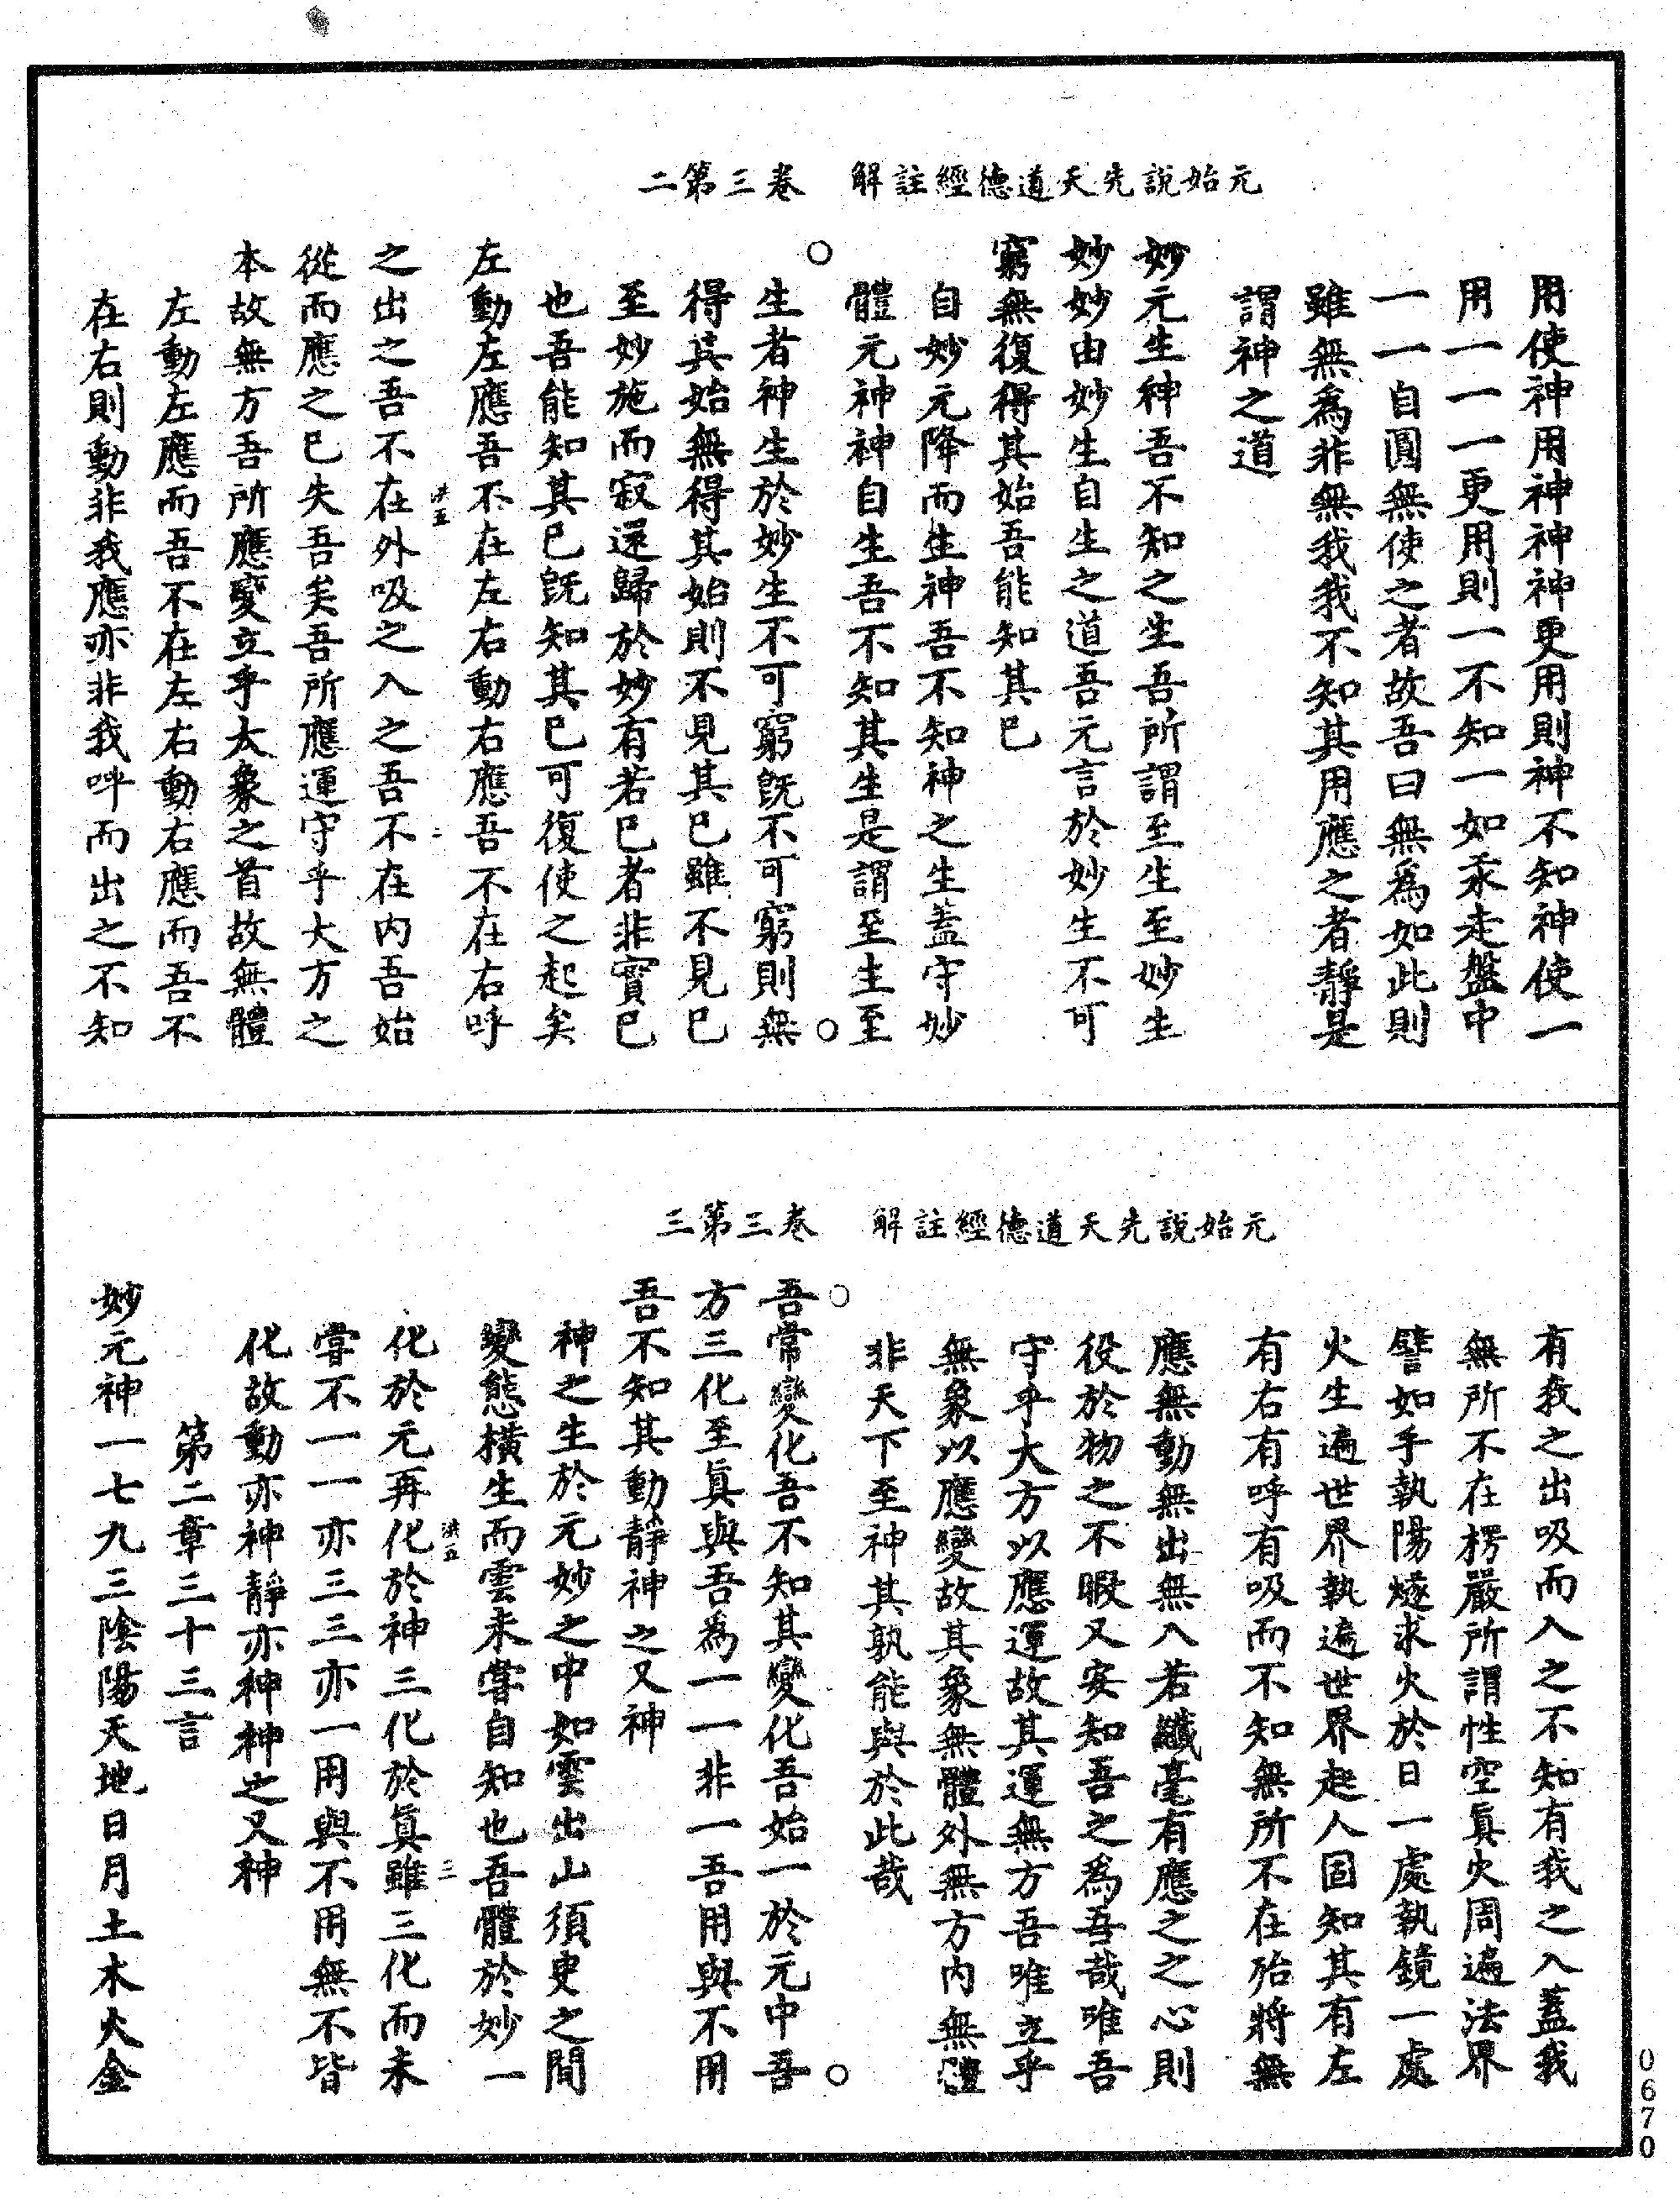 元始說先天道德經註解　卷三第二
用使神用神神神更用則神不知神使一
用一一一更用則一不知一如汞走盤中
一一自圓無使之者故吾曰無爲如此則
雖無爲非無我我不知其用應之者靜是
謂神之道
妙元生神吾不知之生吾所謂至生至妙生
妙妙由妙生自生之道吾元言於妙生不可
窮無復得其始吾能知其已
自妙元降而生神吾不知神之生蓋守妙
體元神神自生吾不知其生是謂至生至
生者神生於妙生不可窮旣不可窮則無
得其始無得其始則不見其已雖不見已
至妙施而寂還歸於妙有若已者非實已
也吾能知其已旣知其已可復使之起矣
左動左應吾不在左右動右應吾不在右呼
洪五　二
之出之吾不在外吸之入之吾不在內吾始
從而應之已失吾矣吾所應運守乎大方之
本故無方吾所應變立乎太象之首故無體
左動左應而吾不在左右動右應而吾不
在右則動非我應亦非我呼而出之不知
元始說先天道德經註解　卷三第三
有我之出吸而入之不知有我之入蓋我
無所不在楞嚴所謂性空眞火周遍法界
譬如手執陽燧求火於日一處執鏡一處
火生遍世界執遍世界起人固知其有左
有右有呼有吸而不知無所不在殆將無
應無動無出無入若纖毫有應之之心則
役於物之不暇又安知吾之爲吾哉唯吾
守乎大方以應運故其運無方吾唯立乎
無象以應變故其象無體外無方內無體
非天下至神其孰能與於此哉
吾常變化吾不知其變化吾始一於元中吾
方三化至眞與吾爲一一非一吾用與不用
吾不知其動靜神之又神
神之生於元妙之中如雲出山須臾之間
變態橫生而雲未嘗自知也吾體於妙一
洪五　三
化於元再化於神三化於眞雖三化而未
嘗不一一亦三三亦一用與不用無不皆
化故動亦神靜亦神神之又神
第二章三十三言
妙元神一七九三陰陽天地日月土木火金
0670